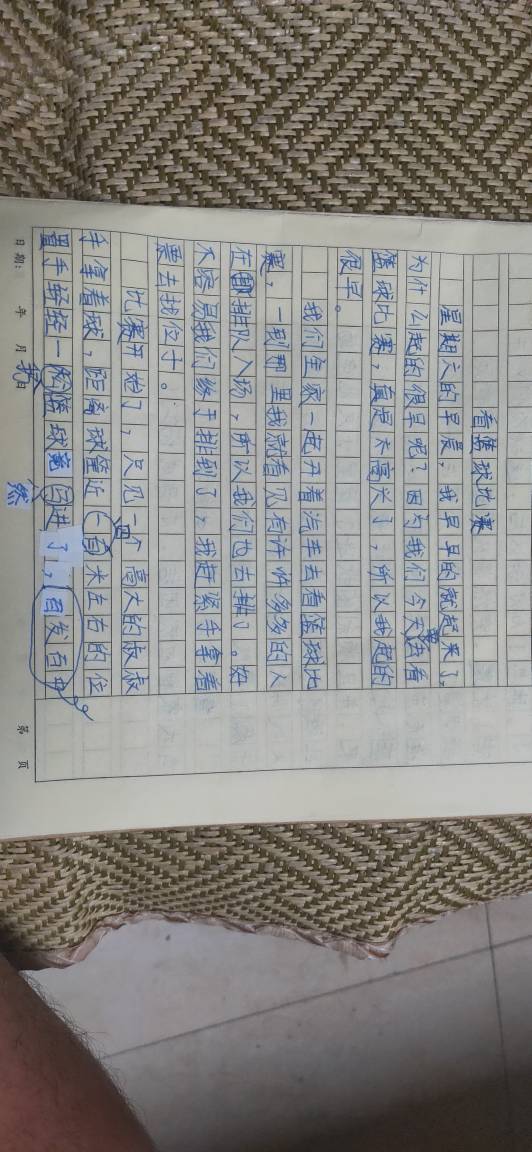 看篮球比赛
星期六的早晨，我早早的就起来了，
为什么起的很早呢？因为我们今天要去看
篮球比赛，真是太高兴了，所以我起的
很早。
我们全家一起开着汽车去看篮球比
赛，一到那里我就看见有许许多多的人
在排队入场，所以我们也去排了。好
不容易我们终于排到了，我赶紧手拿着
票去找位子。
比赛开始了，只见一个高大的叔叔
手拿着球，距离球筐近百米左右的位
置手轻轻一投篮球竟然进了，百发百中
日期： 年 月 日
第 页